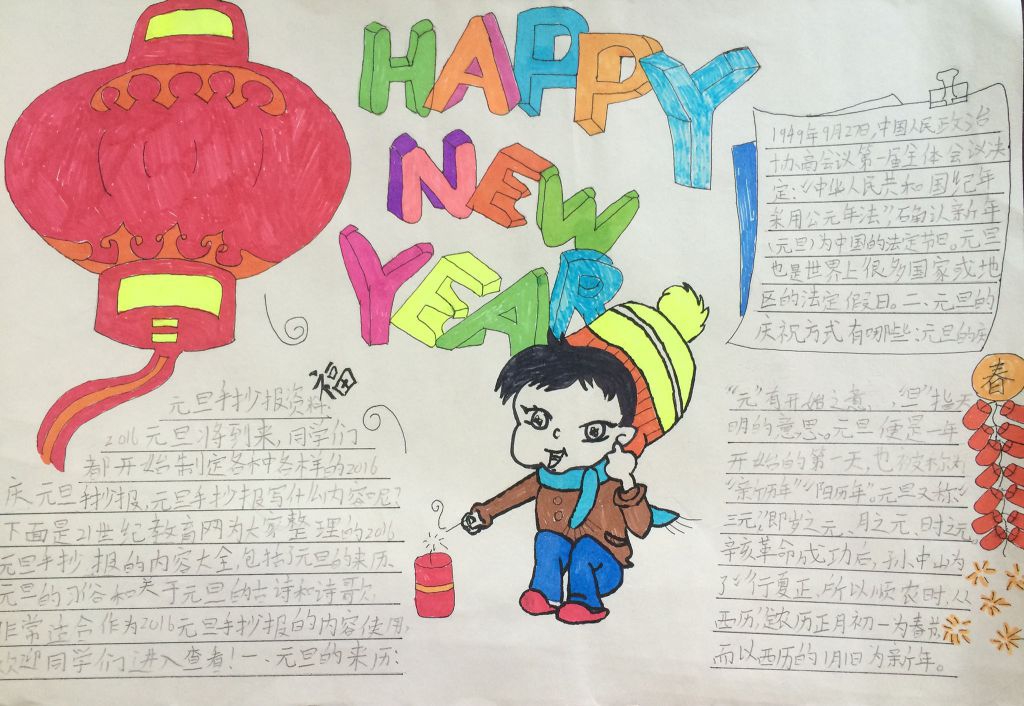 HAPPY
NEW
YEAR
福
元旦手抄报资料:
2016元旦将到来,同学们
都开始制定各种各样的2016
庆元旦手抄报,元旦手抄报写什么内容呢?
下面是21世纪教育网为大家整理的2016
元旦手抄报的内容大全,包括了元旦的来历、
元旦的习俗和关于元旦的古诗和诗歌,
非常适合作为2016元旦手抄报的内容使用,
欢迎同学们进入查看!一、元旦的来历:
1949年9月27日,中国人民政治
协商会议第一届全体会议决
定:“中华人民共和国纪年
采用公元年法”,确认新年
(元旦)为中国的法定节日。元旦
也是世界上很多国家或地
区的法定假日。二、元旦的
庆祝方式有哪些:元旦的庆
春
“元”有开始之意,“但”指天
明的意思。元旦便是一年
开始的第一天,也被称为
“新历年”“阳历年”。元旦又称“
三元”,即岁之元、月之元、时之元
辛亥革命成功后,孙中山为
了“行夏正,所以顺农时,从
西历”,定农历正月初一为春节
而以西历的1月1日为新年。